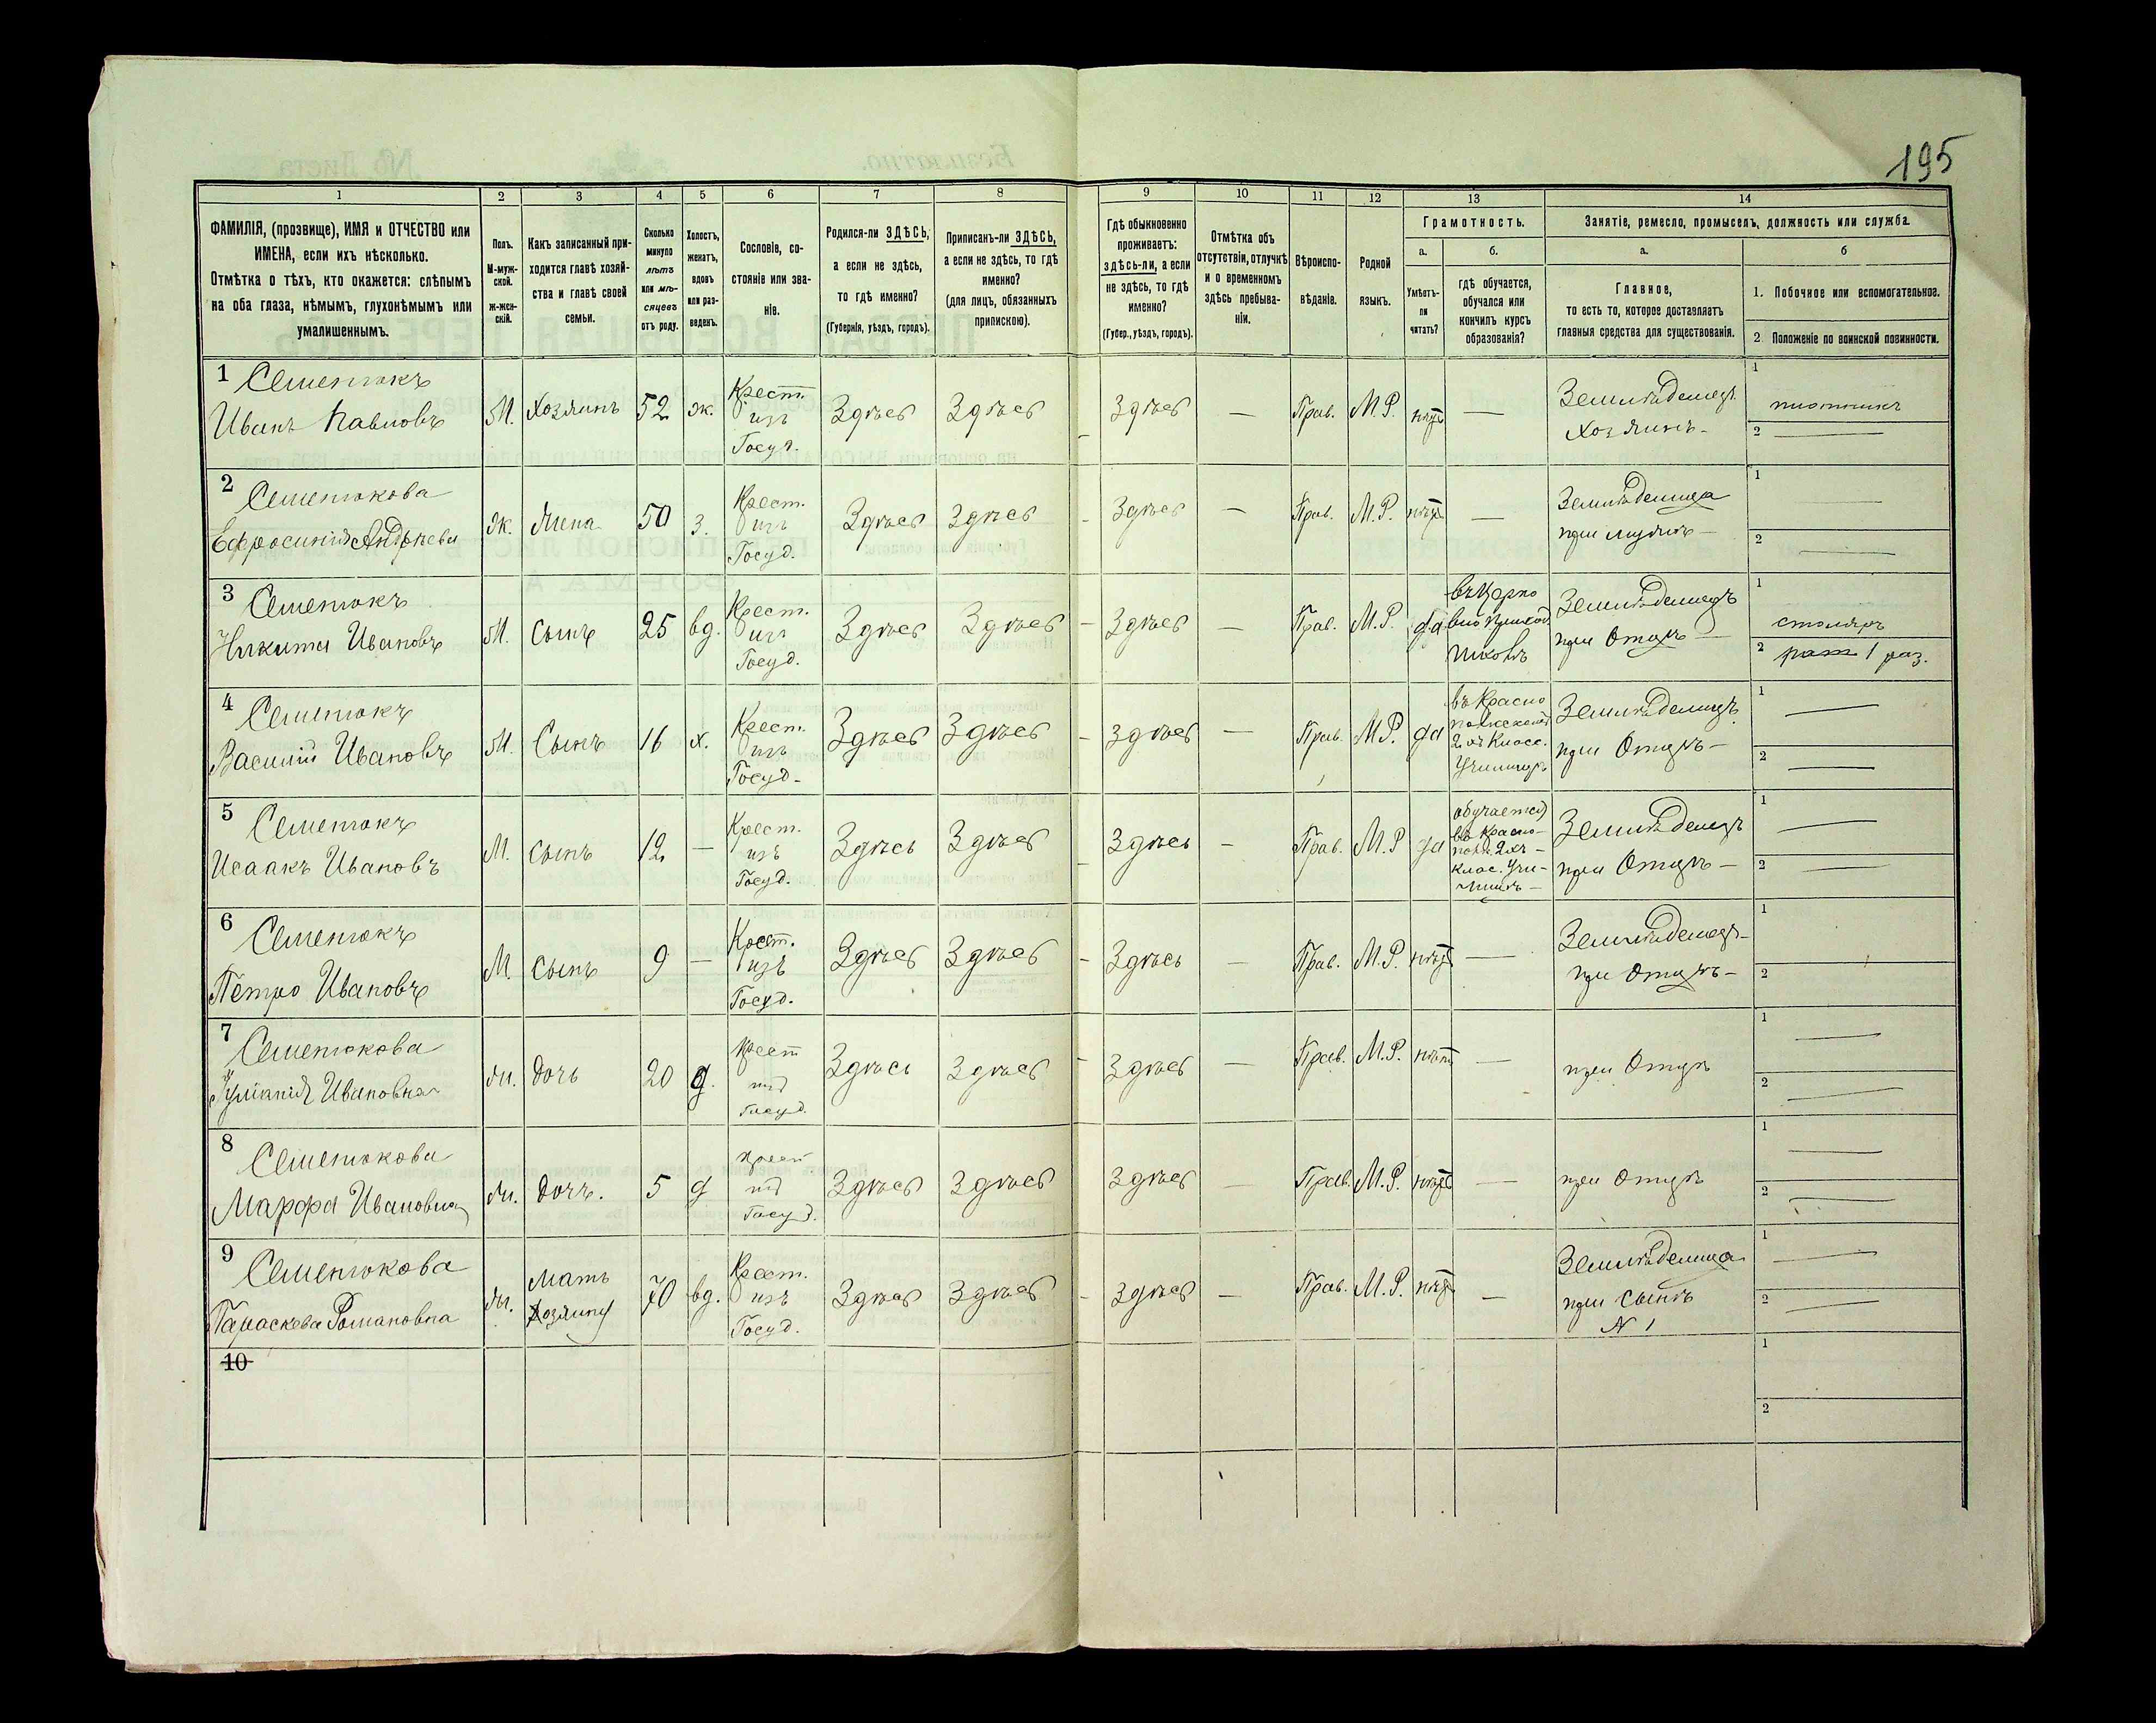 195
1
2
3
4
5
6
7
8
9
10
11
12
13
14
ФАМИЛІЯ, (прозвище), ИМЯ и ОТЧЕСТВО или
ИМЕНА, если ихъ нѣсколько.
Отмѣтка о тѣхъ, кто окажется: слѣпымъ
на оба глаза, нѣмымъ, глухонѣмымъ или
умалишеннымъ.
Полъ.
М-муж-
ской.
ж-жен-
скій.
Какъ записанный при-
ходится главѣ хозяй-
ства и главѣ своей
семьи.
Сколько
минуло
лѣтъ
или мѣ-
сяцевъ
отъ роду.
Холостъ,
женатъ,
вдовъ
или раз-
веденъ.
Сословіе, со-
стояніе или зва-
ніе.
Родился-ли ЗДѢСЬ,
а если не здѣсь,
то гдѣ именно?
(Губернія, уѣздъ, городъ).
Приписанъ-ли ЗДѢСЬ,
а если не здѣсь, то гдѣ
именно?
(для лицъ, обязанныхъ
припискою).
Гдѣ обыкновенно
проживаетъ:
здѣсь-ли, а если
не здѣсь, то гдѣ
именно?
(Губер., уѣздъ, городъ).
Отмѣтка объ
отсутствіи, отлучкѣ
и о временномъ
здѣсь пребыва-
ніи.
Вѣроиспо-
вѣданіе.
Родной
языкъ.
Грамотность.
а.
Умѣетъ-
ли
читать?
б.
гдѣ обучается,
обучался или
кончилъ курсъ
образованія?
Занятіе, ремесло, промыселъ, должность или служба.
а.
Главное,
то есть то, которое доставляетъ
главныя средства для существованія.
б
1. Побочное или вспомогательное.
2 Положеніе по воинской повинности.
1 Семенюкъ
Иванъ Павловъ
М.
Хозяинъ
52
ж.
Крест.
изъ
Госуд.
Здѣсь
Здѣсь
Здѣсь
—
Прав.
М.Р.
нѣтъ
—
Земледѣлецъ
Хозяинъ
1
плотникъ
2 —
2 Семенюкова
Ефросинія Андреева
Ж.
Жена
50
з.
Крест.
изъ
Госуд.
Здѣсь
Здѣсь
Здѣсь
—
Прав.
М.Р.
нѣтъ
—
Земледѣлица
при мужѣ
1 —
2 —
3 Семенюкъ
Никита Ивановъ
М.
Сынъ
25
вд.
Крест.
изъ
Госуд.
Здѣсь
Здѣсь
Здѣсь
—
Прав.
М.Р.
да
въ Церко
вно приход
школѣ
Земледѣлецъ
при Отцѣ
1
столяръ
2 рат 1 раз.
4 Семенюкъ
Василій Ивановъ
М.
Сынъ
16
х.
Крест.
изъ
Госуд.
Здѣсь
Здѣсь
Здѣсь
—
Прав.
М.Р.
да
въ Красно
2хъ Класс.
Училищѣ
Земледѣлецъ
при Отцѣ
1 —
2 —
5 Семенюкъ
Исаакъ Ивановъ
М.
сынъ
12
—
Крест.
изъ
Госуд.
Здѣсь
Здѣсь
Здѣсь
-
Прав.
М.Р
да
обучается
въ Красно-
2хъ-
клас. Учи-
лищѣ
Земледѣлецъ
при Отцѣ
1 —
2 —
6 Семенюкъ
Петро Ивановъ
М.
сынъ
9
—
Крест.
изъ
Госуд.
Здѣсь
Здѣсь
Здѣсь
—
Прав.
М.Р.
нѣтъ
—
Земледѣлецъ
при Отцѣ
1
2
7 Семенюкова
Ивановна
Ж.
дочь
20
д.
Крест
изъ
Госуд.
Здѣсь
Здѣсь
Здѣсь
—
Прав.
М.Р.
нѣтъ
—
при Отцѣ
1 —
2 —
8 Семенюкова
Марфа Ивановна
Ж.
дочь.
5
д
Крест
изъ
Госуд.
Здѣсь
Здѣсь
Здѣсь
—
Прав.
М.Р.
нѣтъ
—
при Отцѣ
1 —
2 —
9 Семенюкова
Параскева Романовна
Ж.
Мать
Хозяину
70
вд.
Крест.
изъ
Госуд.
Здѣсь
Здѣсь
Здѣсь
—
Прав.
М.Р.
нѣтъ
—
Земледѣлица
при Сынѣ
N 1
1 —
2 —
10
1
2